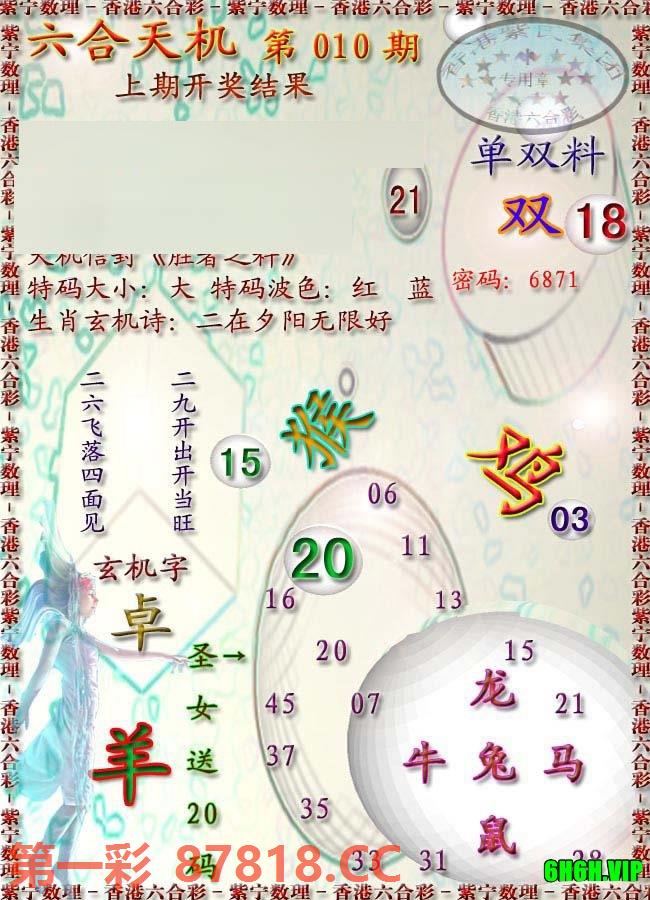 紫宁数理－香港六合彩－紫宁数理－香港六合彩－紫宁数理－香港六合彩－紫宁数理
六合天机 第 010 期
上期开奖结果
专用章
香港六合彩
单双料
21
双 18
特码大小：大 特码波色：红 蓝
密码：6871
生肖玄机诗：二在夕阳无限好
二九开出开当旺
二六飞落四面见
猴
15
鸡
03
06
11
20
16
13
玄机字
卓
圣→
女
送
20
码
羊
20
45
07
37
35
33
31
15
龙
21
牛 兔 马
鼠
第一彩 87818.CC
6H6H.VIP
紫宁数理－香港六合彩－紫宁数理－香港六合彩－紫宁数理－香港六合彩－紫宁数理